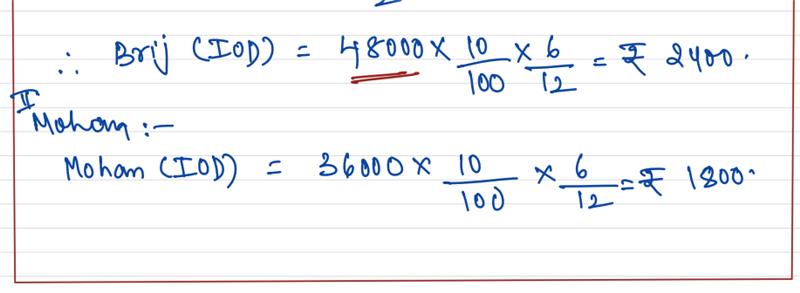 ∴ Brij (IOD) = 48000 × 10/100 × 6/12 = ₹ 2400.
II Mohan :-
Mohan (IOD) = 36000 × 10/100 × 6/12 = ₹ 1800.